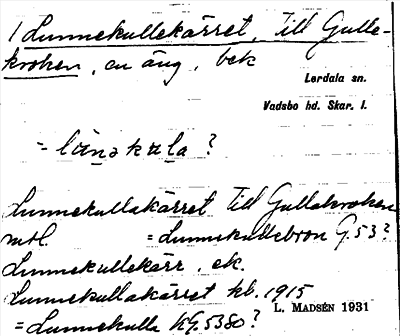 1 Lunnekullekärret, till Gulle-
kroken, en äng, bek
Lerdala sn.
Vadsbo hd. Skar. l.
= lùnəkùla ?
Lunnekullakärret till Gullakroken
mtl. = Lunnekullebron G.53?
Lunnekullekärr, ek.
Lunnekullakärret kb. 1915
L. MADSÉN 1931
= Lunnekulle HG.5380?